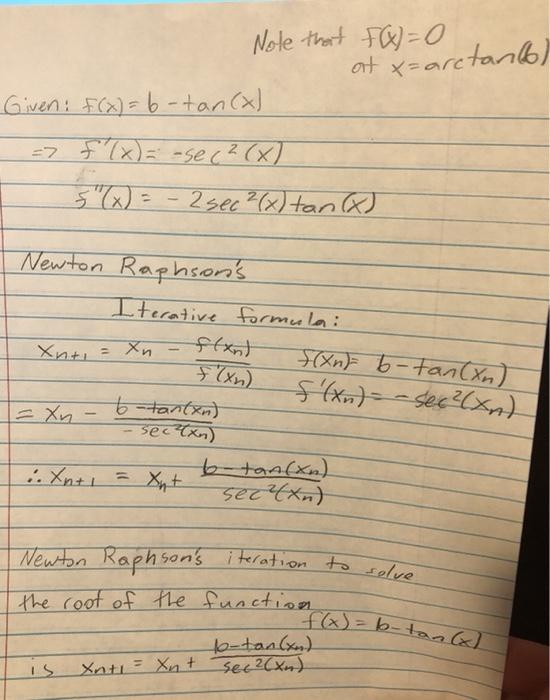 Note that f(x)=0
at x=arctan(b)
Given: f(x)=b-tan(x)
=> f'(x)= -sec²(x)
f"(x) = - 2sec²(x)tan(x)
Newton Raphson's
Iterative formula:
xₙ₊₁ = xₙ - f(xₙ)/f'(xₙ)    f(xₙ)= b-tan(xₙ)
f'(xₙ)= -sec²(xₙ)
= xₙ - b-tan(xₙ)/-sec²(xₙ)
∴ xₙ₊₁ = xₙ+ b-tan(xₙ)/sec²(xₙ)
Newton Raphson's iteration to solve
the root of the function
f(x)=b-tan(x)
is xₙ₊₁ = xₙ + b-tan(xₙ)/sec²(xₙ)